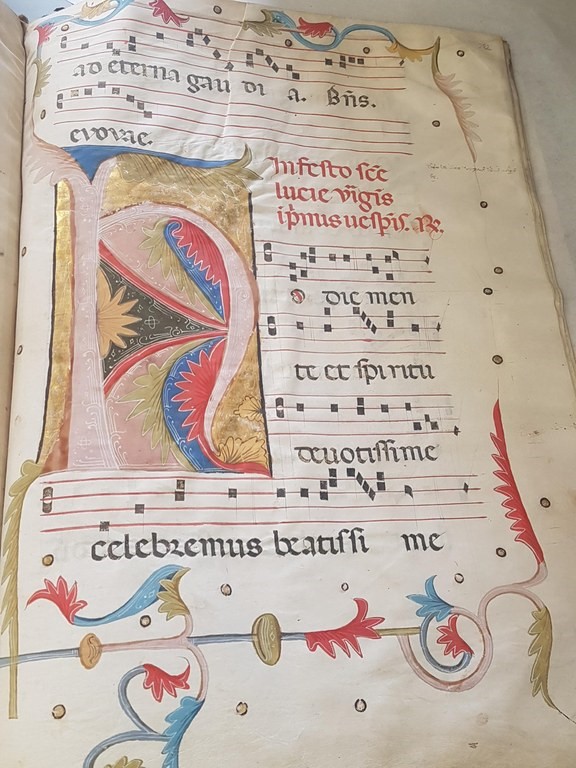 ad eterna gau di a. Bñs.
evovae.
In festo scē
lucie v̄gis
ip̄inus vesp̄is. R̄.
odie men
te et spiritu
devotissime
celebremus beatissi me